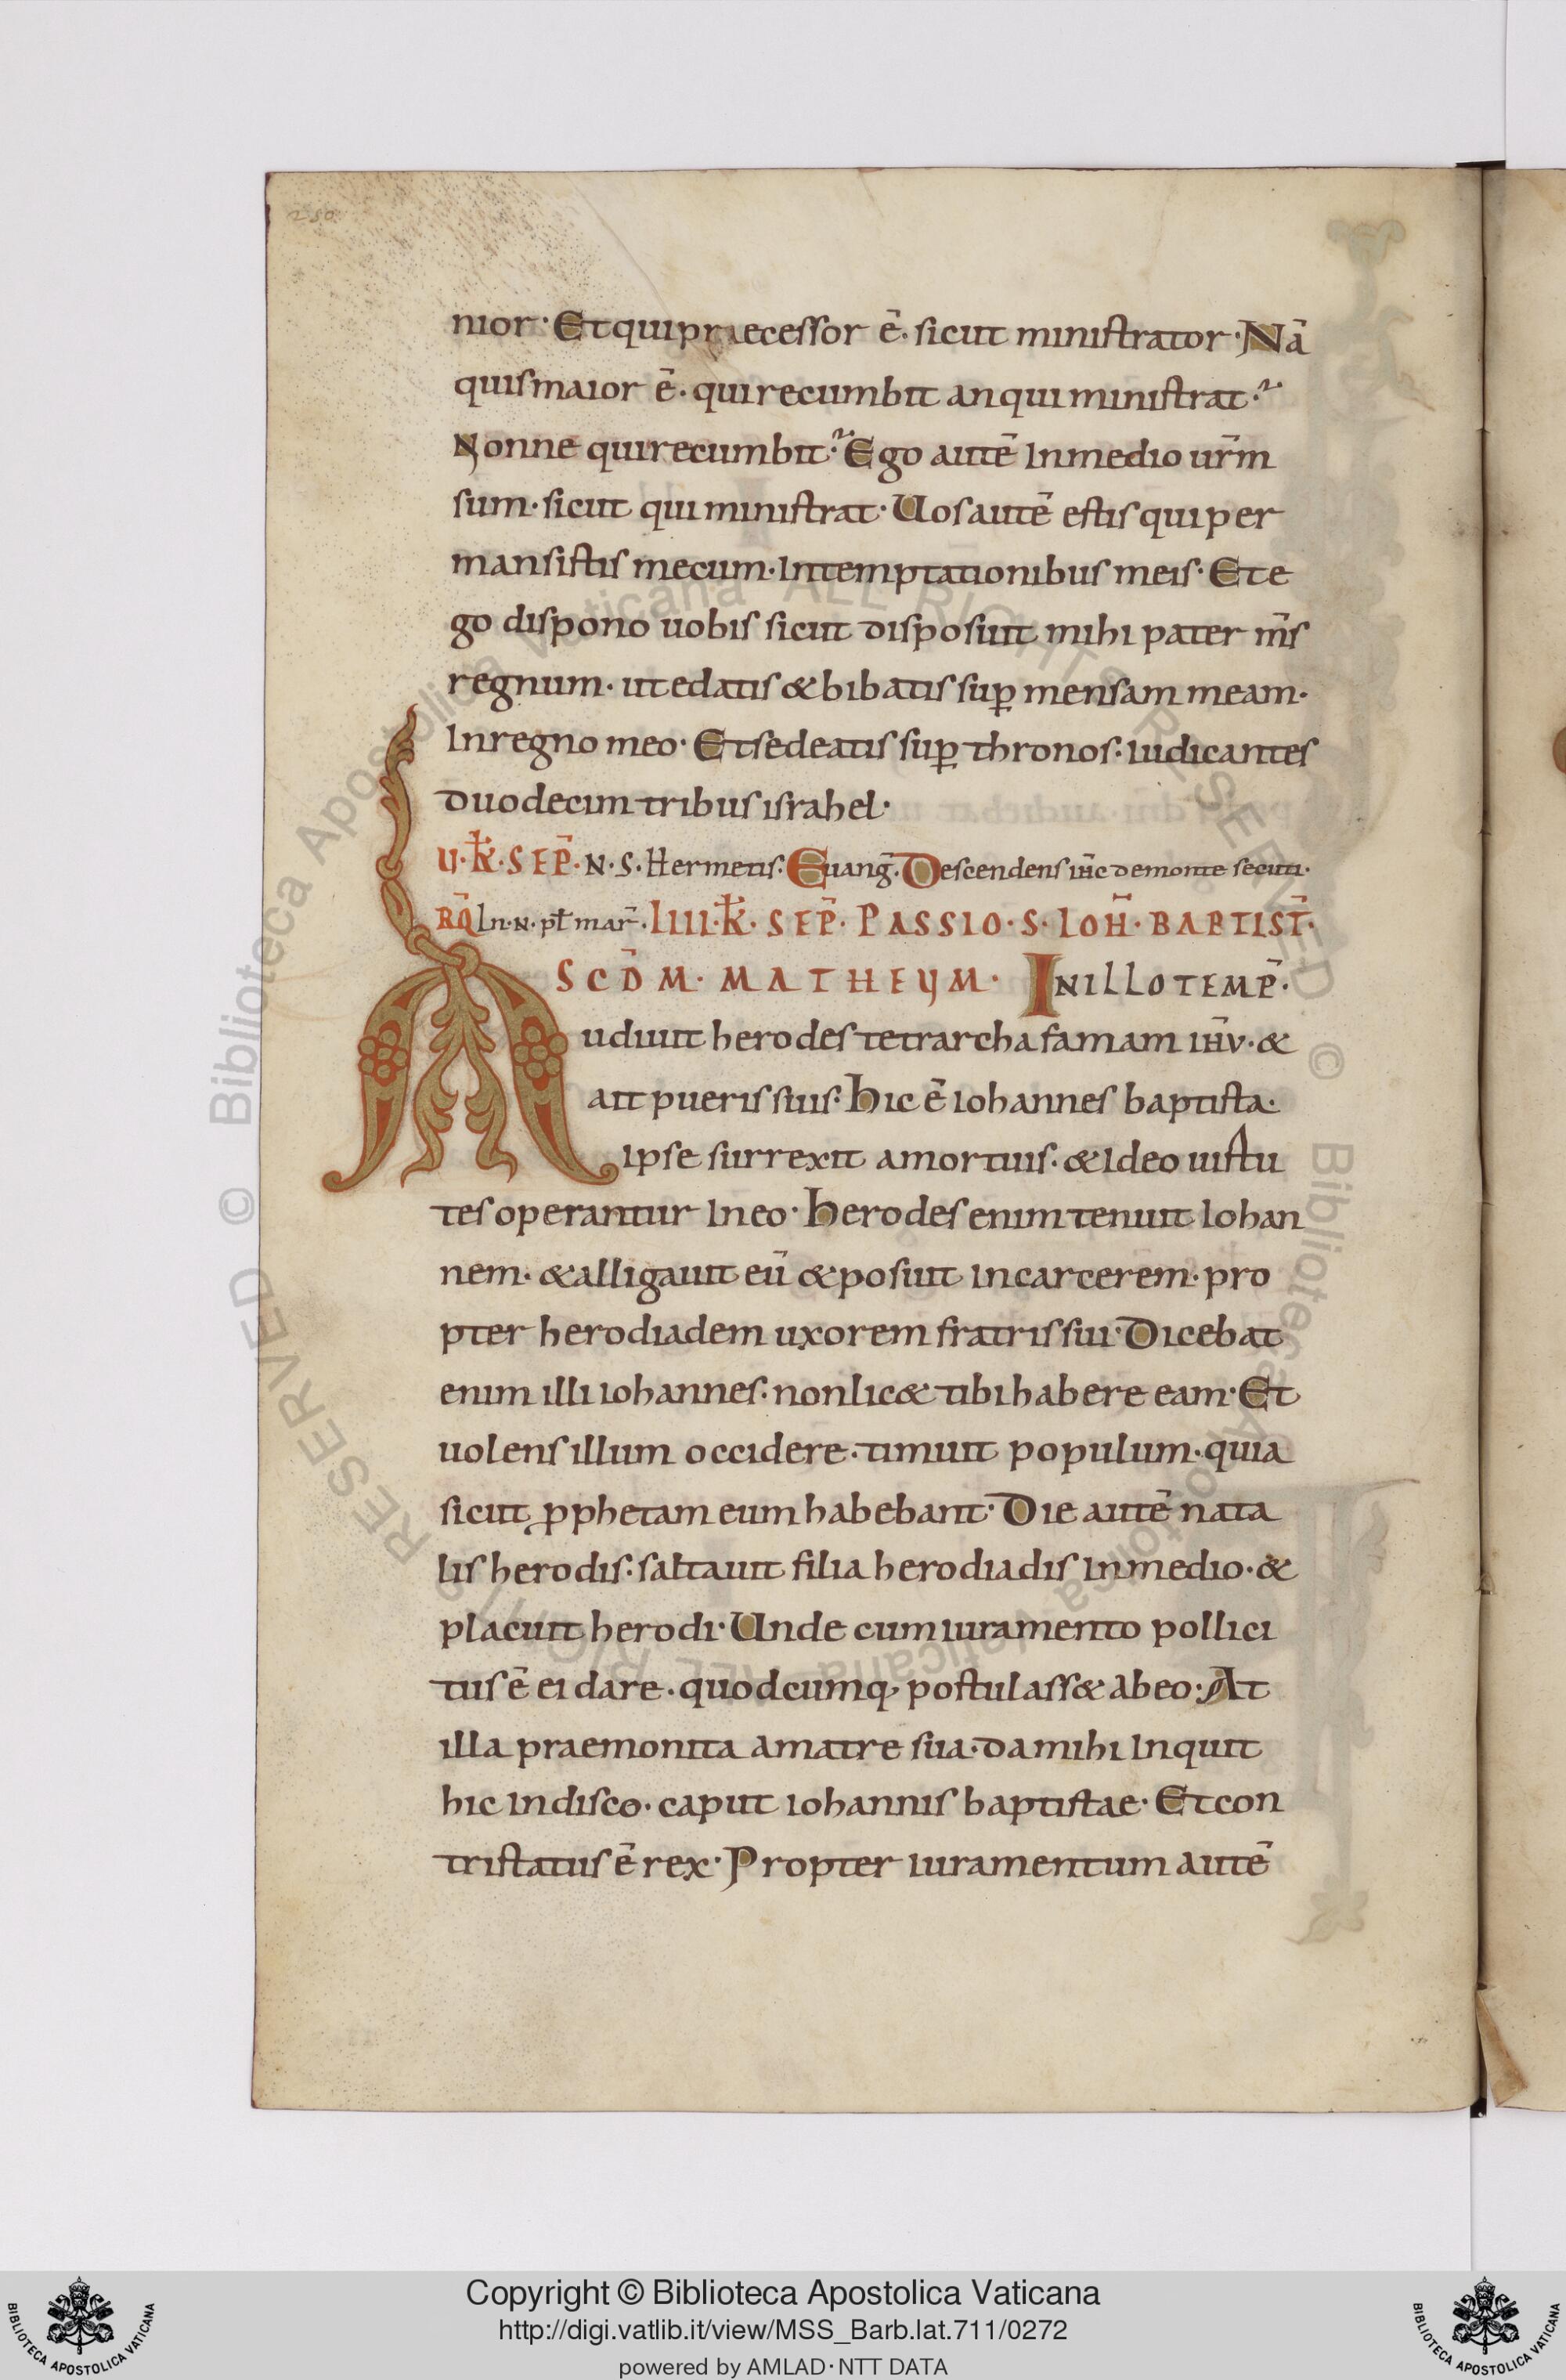 250
nior· Et qui praecessor ē· sicut ministrator· Nā
quis maior ē· qui recumbit an qui ministrat·?
Nonne qui recumbit·? Ego autē In medio ur̄m
sum· sicut qui ministrat· Uos autē estis qui per
mansistis mecum· In temptationibus meis· Et e
go dispono uobis sicut disposuit mihi pater m̄s
regnum· ut edatis & bibatis sup̲ mensam meam·
In regno meo· Et sedeatis sup̲ thronos: iudicantes
duodecim tribus israhel·
U· K̄· SEP̄· N· S· Hermetis: Euanḡ· Descendens ih̄c de monte secuti·
RQ̄ In· N· pł mar̄· IIII· K̄· SEP̄· PASSIO· S· IOH̄· BAPTIST̄·
SCD̄M· MATHEUM· IN ILLO TEMP̄·
Audiuit herodes tetrarcha famam ih̄u· &
ait pueris suis: Hic ē iohannes baptista·
Ipse surrexit a mortuis· & Ideo uirtu
tes operantur In eo· Herodes enim tenuit Iohan
nem· & alligauit eū & posuit In carcerem· pro
pter herodiadem uxorem fratris sui· Dicebat
enim illi iohannes· non lic& tibi habere eam· Et
uolens illum occidere· timuit populum· quia
sicut ꝓphetam eum habebant· Die autē nata
lis herodis: saltauit filia herodiadis In medio· &
placuit herodi· Unde cum iuramento pollici
tus ē ei dare· quodcumq; postulass& ab eo· At
illa praemonita a matre sua· da mihi Inquit
hic In disco· caput iohannis baptistae· Et con
tristatus ē rex· Propter iuramentum autē
© Biblioteca Apostolica Vaticana ALL RIGHTS RESERVED © Biblioteca Apostolica Vaticana ALL RIGHTS RESERVED
Copyright © Biblioteca Apostolica Vaticana
http://digi.vatlib.it/view/MSS_Barb.lat.711/0272
powered by AMLAD·NTT DATA
BIBLIOTECA APOSTOLICA VATICANA
BIBLIOTECA APOSTOLICA VATICANA